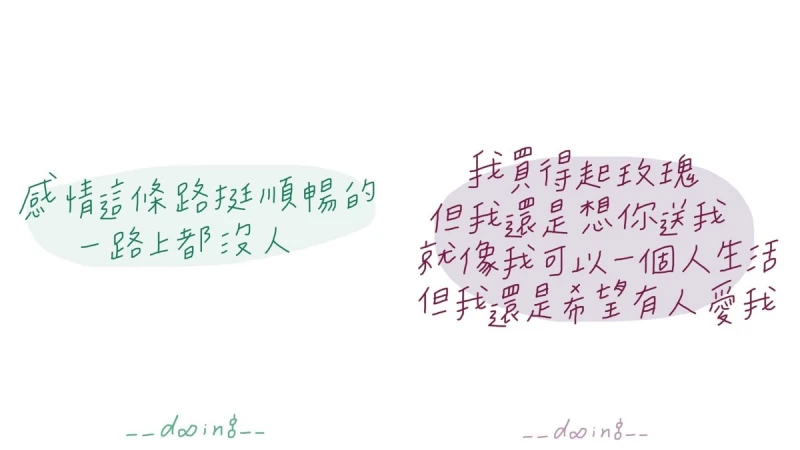 感情這條路挺順暢的
一路上都沒人
__d∞ing__
我買得起玫瑰
但我還是想你送我
就像我可以一個人生活
但我還是希望有人愛我
__d∞ing__